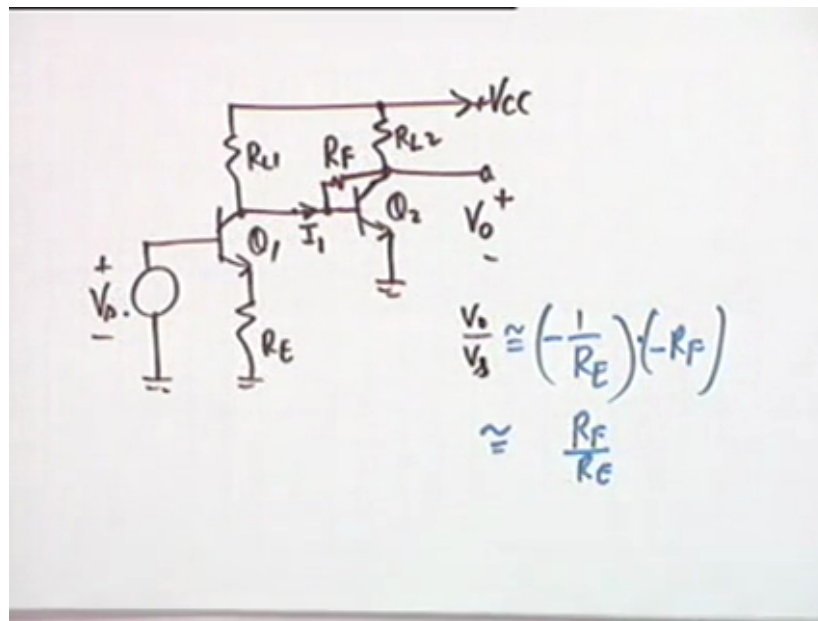 +VCC
RL1
RF
RL2
Q1
I1
Q2
+
Vo
-
+
Vs.
-
RE
Vo/Vs ≅ (-1/RE)·(-RF)
≅ RF/RE